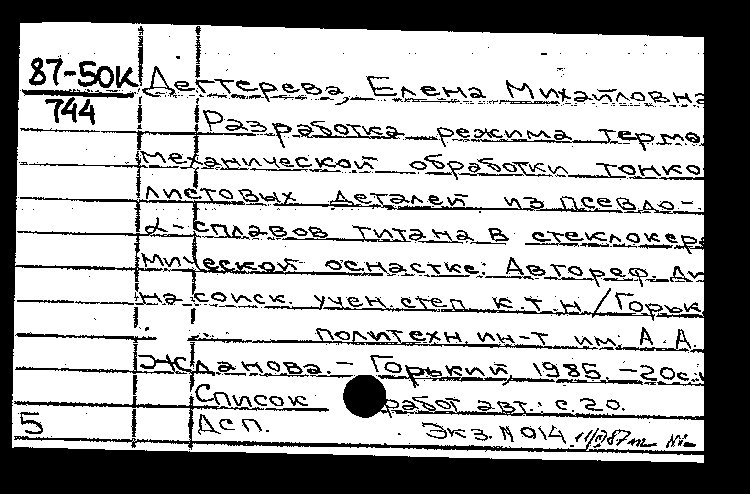 87-50К Дегтерева, Елена Михайловна
744
Разработка режима термо
механической обработки тонко
листовых деталей из псевдо-
α-сплавов титана в стеклокера
мической оснастке: Автореф. ди
на соиск. учен. степ. к.т.н / Горьк
политехн. ин-т им. А.А.
Жданова. – Горький, 1985. – 20с.
Список работ авт.: с. 20.
5 ДСП. Экз. N 014